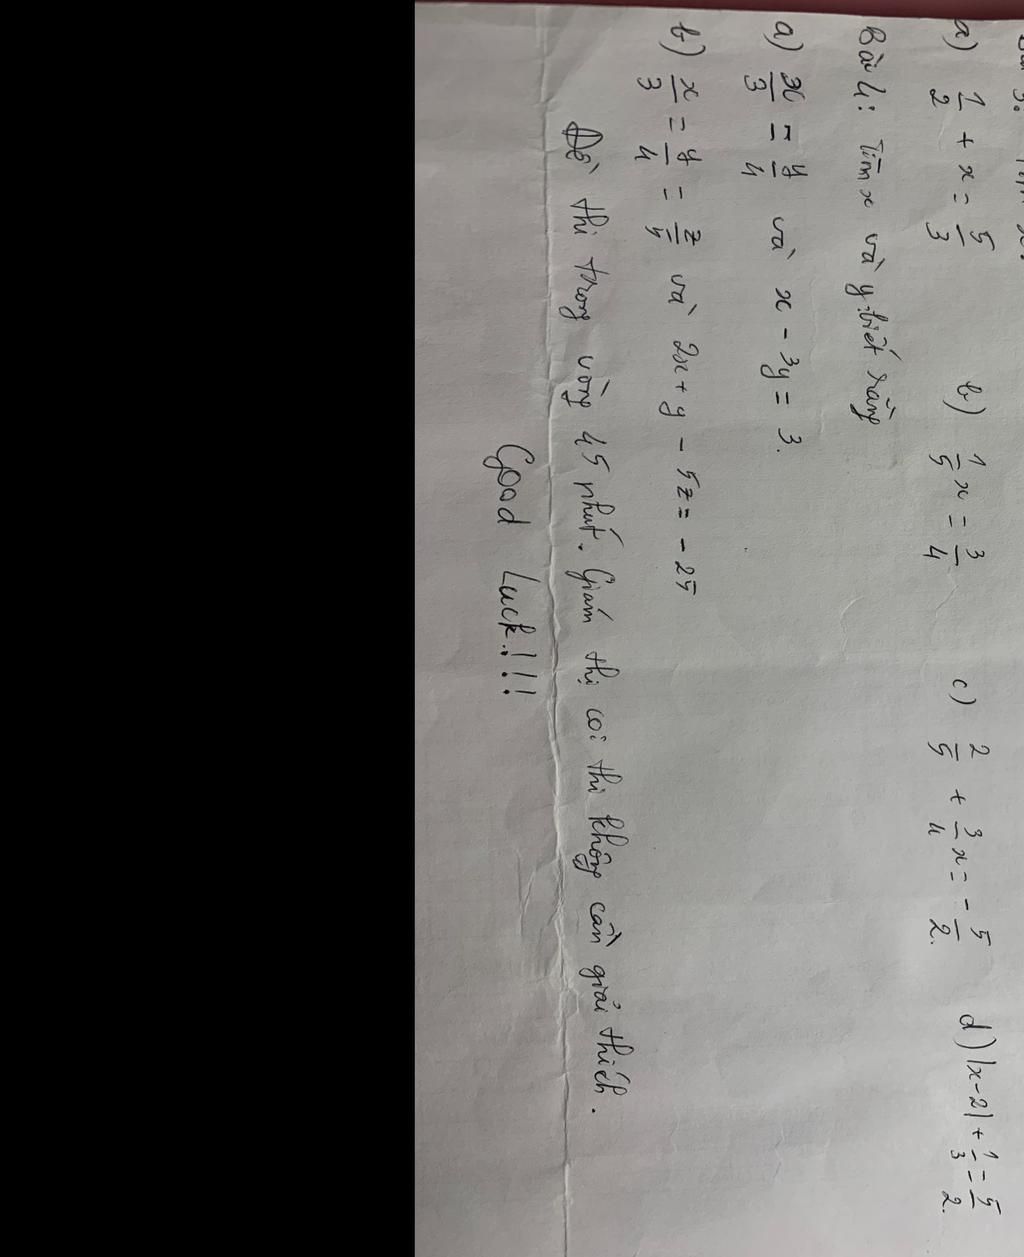 3.
a) 1/2 + x = 5/3 b) 1/5 x = 3/4 c) 2/5 + 3/4 x = - 5/2. d) |x-2| + 1/3 = 5/2.
Bài 4: Tìm x và y, biết rằng
a) x/3 = y/4 và x - 3y = 3.
b) x/3 = y/4 = z/5 và 2x + y - 5z = - 25
Đề thi trong vòng 45 phút. Giám thị coi thi không cần giải thích.
Good Luck!!!